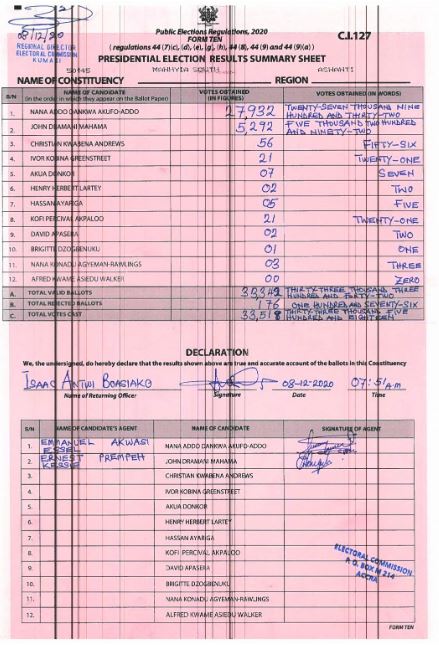 08/12/20
REGIONAL DIRECTOR
ELECTORAL COMMISSION
KUMASI
Public Elections Regulations, 2020
FORM TEN
C.I.127
( regulations 44 (7)(c), (d), (e), (g), (h), 44 (8), 44 (9) and 44 (9)(a) )
PRESIDENTIAL ELECTION RESULTS SUMMARY SHEET
MANHYIA SOUTH ASHANTI
NAME OF CONSTITUENCY REGION
S/N NAME OF CANDIDATE (in the order in which they appear on the Ballot Paper) VOTES OBTAINED (IN FIGURES) VOTES OBTAINED (IN WORDS)
1. NANA ADDO DANKWA AKUFO-ADDO 27,932 TWENTY-SEVEN THOUSAND NINE HUNDRED AND THIRTY-TWO
2. JOHN DRAMANI MAHAMA 5,292 FIVE THOUSAND TWO HUNDRED AND NINETY-TWO
3. CHRISTIAN KWABENA ANDREWS 56 FIFTY-SIX
4. IVOR KOBINA GREENSTREET 21 TWENTY-ONE
5. AKUA DONKOR 07 SEVEN
6. HENRY HERBERT LARTEY 02 TWO
7. HASSAN AYARIGA 05 FIVE
8. KOFI PERCIVAL AKPALOO 21 TWENTY-ONE
9. DAVID APASERA 02 TWO
10. BRIGITTE DZOGBENUKU 01 ONE
11. NANA KONADU AGYEMAN-RAWLINGS 03 THREE
12. ALFRED KWAME ASIEDU WALKER 00 ZERO
A. TOTAL VALID BALLOTS 33,342 THIRTY-THREE THOUSAND THREE HUNDRED AND FORTY-TWO
B. TOTAL REJECTED BALLOTS 176 ONE HUNDRED AND SEVENTY-SIX
C. TOTAL VOTES CAST 33,518 THIRTY-THREE THOUSAND FIVE HUNDRED AND EIGHTEEN
DECLARATION
We, the undersigned, do hereby declare that the results shown above are true and accurate account of the ballots in this Constituency
ISAAC ANTWI BOASIAKO 08-12-2020 07:51 A.M
Name of Returning Officer Signature Date Time
S/N NAME OF CANDIDATE'S AGENT NAME OF CANDIDATE SIGNATURE OF AGENT
1. EMMANUEL AKWASI ESSEL NANA ADDO DANKWA AKUFO-ADDO
2. ERNEST PREMPEH KESSIE JOHN DRAMANI MAHAMA
3. CHRISTIAN KWABENA ANDREWS
4. IVOR KOBINA GREENSTREET
5. AKUA DONKOR
6. HENRY HERBERT LARTEY
7. HASSAN AYARIGA
8. KOFI PERCIVAL AKPALOO
9. DAVID APASERA
10. BRIGITTE DZOGBENUKU
11. NANA KONADU AGYEMAN-RAWLINGS
12. ALFRED KWAME ASIEDU WALKER
ELECTORAL COMMISSION
P. O. BOX M 214
ACCRA
FORM TEN